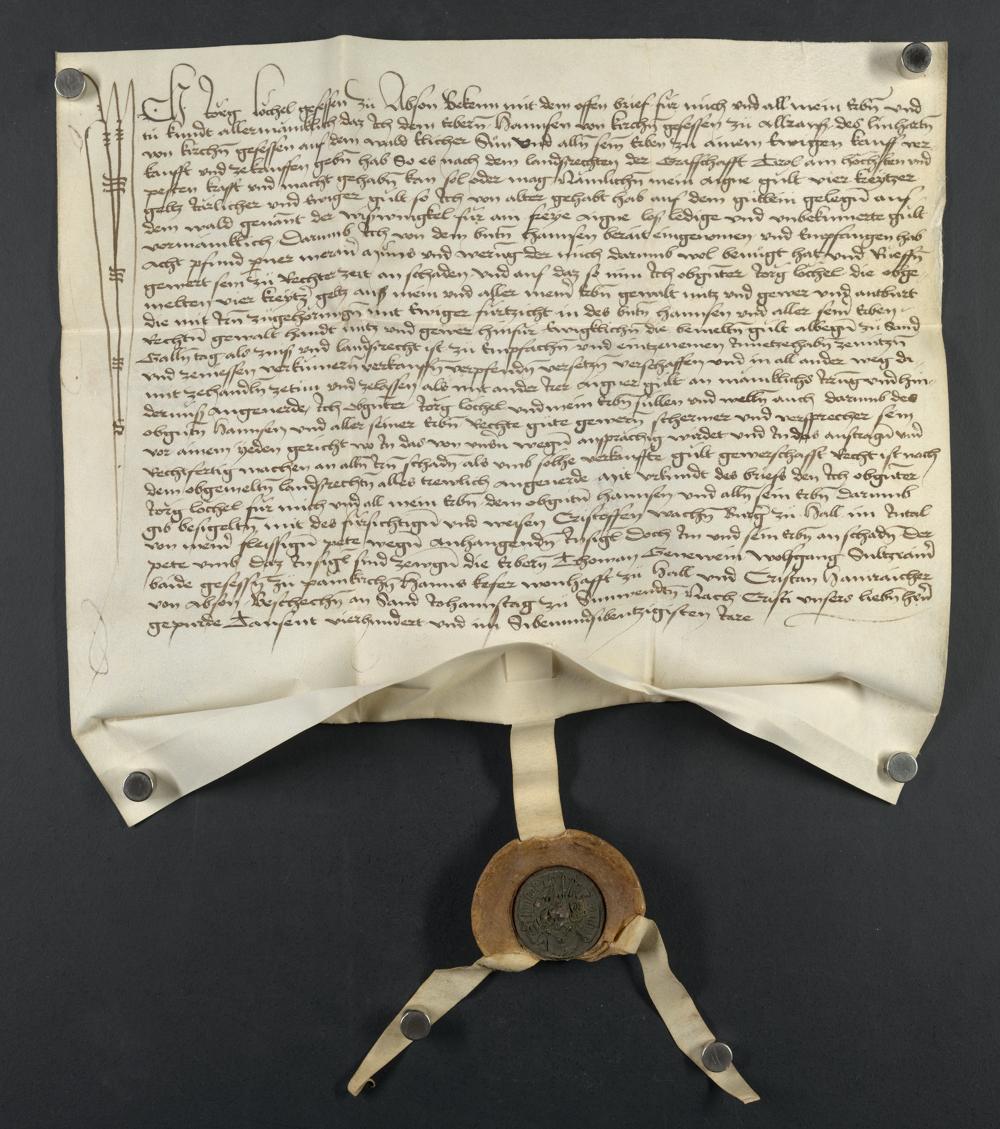 Ich Jörg löchel gesessen zü Abson Bekenn mit dem offen brief für mich vnd all mein Erbñ vnd
tü kundt allermänklich daz Ich dem Erberñ Hannsen von kirchñ gesessen zü Allranß des linhartñ
von kirchñ gesessen auf dem wald klicher Sün vnd alln sein Erben zu ainem Ewigen kauff ver
kaufft vnd zekauffen gebñ hab So es nach dem landsrechten der Grafschafft Tirol am höchsten vnd
pesten krafft vnd macht gehabñ kan sol oder mag Nämlichñ mein aigne gült vier kreytzer
geltz Järlicher vnd Ewiger gült so Ich von alter gehabt hab auf dem güttlein gelegñ auf
dem wald genannt der wiswinkgel für ain freye aigne los ledige vnd vnbekümerte gült
vormänklich Darumb Ich von dem bntñ Hannsen berait eingenomen vnd Empfangen hab
Acht pfund pner meraner münß vnd werüg der mich darumb wol benügt hat vnd Rüeffñ
gewert sein zü Rechter zeit an schaden vnd auf daz so nim Ich obgnter Jörg löchel die obge-
melten vier kreytzer geltz auß mein vnd aller meiner Erbñ gewalt nutz vnd gewer vnd antburt
die mit Irñ zügehörungñ mit Ewiger fürtzicht in des bntñ Hannsen vnd aller seiner Erben
Rechtñ gewalt handt nutz vnd gewer hinfür Ewigklichñ die bemeltñ gült albegñ zu Sand
Gallñ tag als zinß vnd landsrecht ist zü Empfachñ vnd eintzenemen Innetzehabñ zenutzñ
vnd zeniessen verkümern verkauffñ verpfendñ versetzñ verschaffen vnd in all ander weg da
mit zehandln zetün vnd zelassen als mit ander Irer aigner gült an mänklichs Irrüg vnd hin-
dernüss angeuerde Ich obgnter Jörg löchel vnd mein Erbñ süllen vnd welln auch darumb des
obgntñ Hannsen vnd aller seiner Erbñ Rechte güte gewern schermer vnd versprecher sein
vor ainem yeden gericht wo In das von vnsñ wegñ ansprächig wirdet vnd In das austragñ vnd
Rechtfertig machen an alln Irñ schadñ als vmb solhe verkauffte gült gewerschafft Recht ist nach
dem obgemeltñ landsrechtñ alles trewlich angeuerde Mit vrkundt des briefs den Ich obgnter
Jörg löchel für mich vnd all mein Erbñ dem obgntñ Hannsen vnd alln sein Erbñ darumb
gib besigeltñ mit des fürsichtigñ vnd weisen Cristoffen wachñ Burger zü Hall im Intal
von meiner fleissigñ pete wegñ Anhangendñ Insigl Doch Im vnd sein Erbñ an schadñ Der
pete vmb daz Insigl sind zewgñ die Erbern Thoman Genewein wolfgang Sultzrainer
baide gesessen zü pamkirchñ Hanns keser wonhafft zü Hall vnd Cristan Hamraicher
von Absen Beschechñ an Sand Johannstag zü Sunwendñ Nach Cristi vnsers liebñ herñ
gepurde Tausent vierhundert vnd im Sibenundsibentzigisten Jare